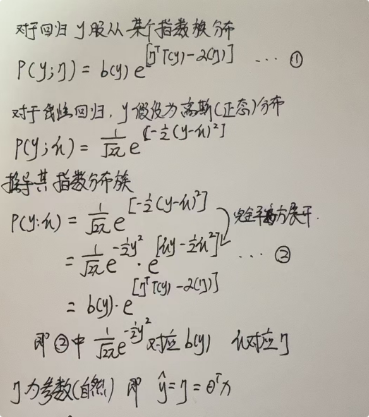 对于回归 y服从某个指数族分布
P(y;η) = b(y) e^[η^T T(y) - a(η)] ... ①
对于线性回归, y假设为高斯(正态)分布
P(y;u) = 1/√2π e^[-1/2(y-u)²]
推导其指数分布族
P(y;u) = 1/√2π e^[-1/2(y-u)²] 完全平方展开
= 1/√2π e^(-1/2y²) · e^[uy-1/2u²] ... ②
= b(y)·e^[η^T T(y) - a(η)]
即②中 1/√2π e^(-1/2y²) 对应b(y) u对应η
η为参数(自然) 即 ŷ=η=θ^T x